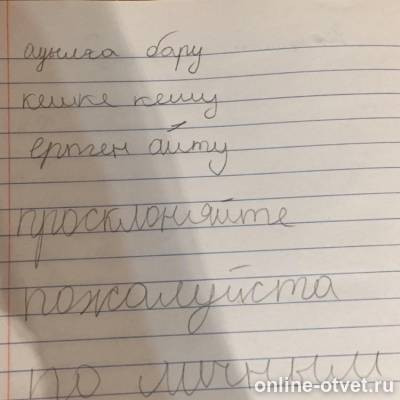 ауылға бару
кешке кешу
ертен айту
просклоняйте
пожалуйста
по личным
online-otvet.ru